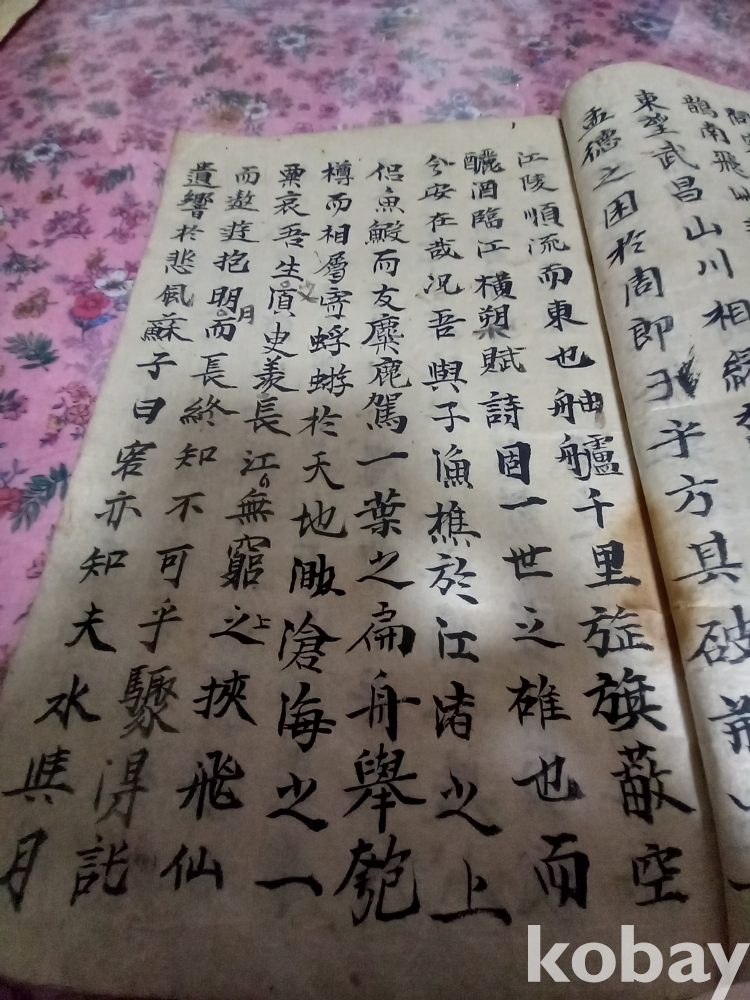 鵲南飛此
東望武昌山川相繆
孟德之困於周郎乎方其破荊
江陵順流而東也舳艫千里旌旗蔽空
釃酒臨江橫槊賦詩固一世之雄也而
今安在哉况吾與子漁樵於江渚之上
侶魚鰕而友麋鹿駕一葉之扁舟舉匏
樽而相屬寄蜉蝣於天地渺滄海之一
粟哀吾生之須臾羨長江無窮之上挾飛仙
而遨遊抱明月而長終知不可乎驟得託
遺響於悲風蘇子曰客亦知夫水與月
kobay